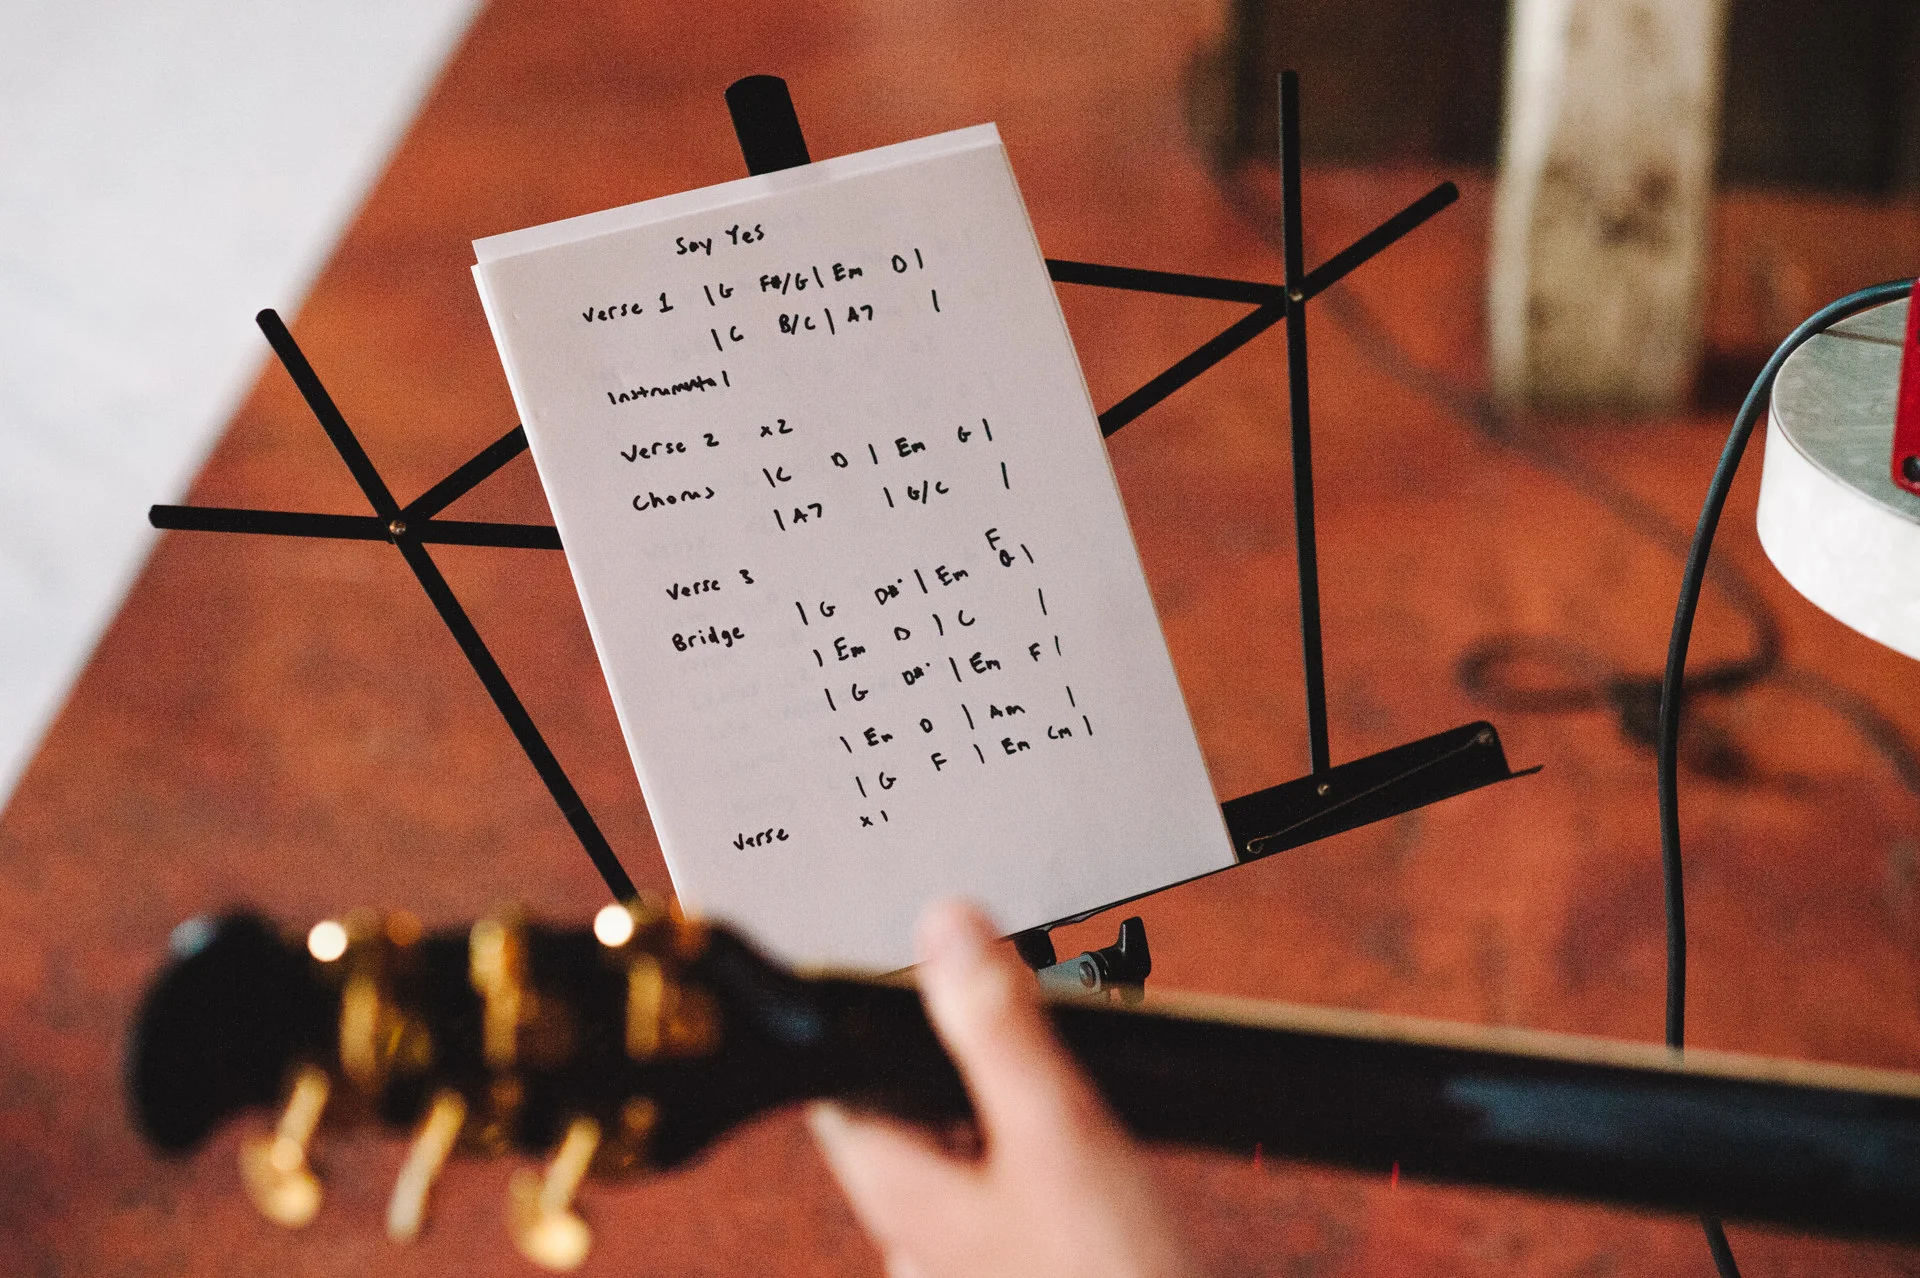 Say Yes
Verse 1 | G F#/G | Em D |
| C B/C | A7 |
Instrumental
Verse 2 x2
Chorus | C D | Em G |
| A7 | G/C |
Verse 3
F
Bridge | G D#° | Em |
| Em D | C |
| G D#° | Em F |
| Em D | Am |
| G F | Em Cm |
Verse x1